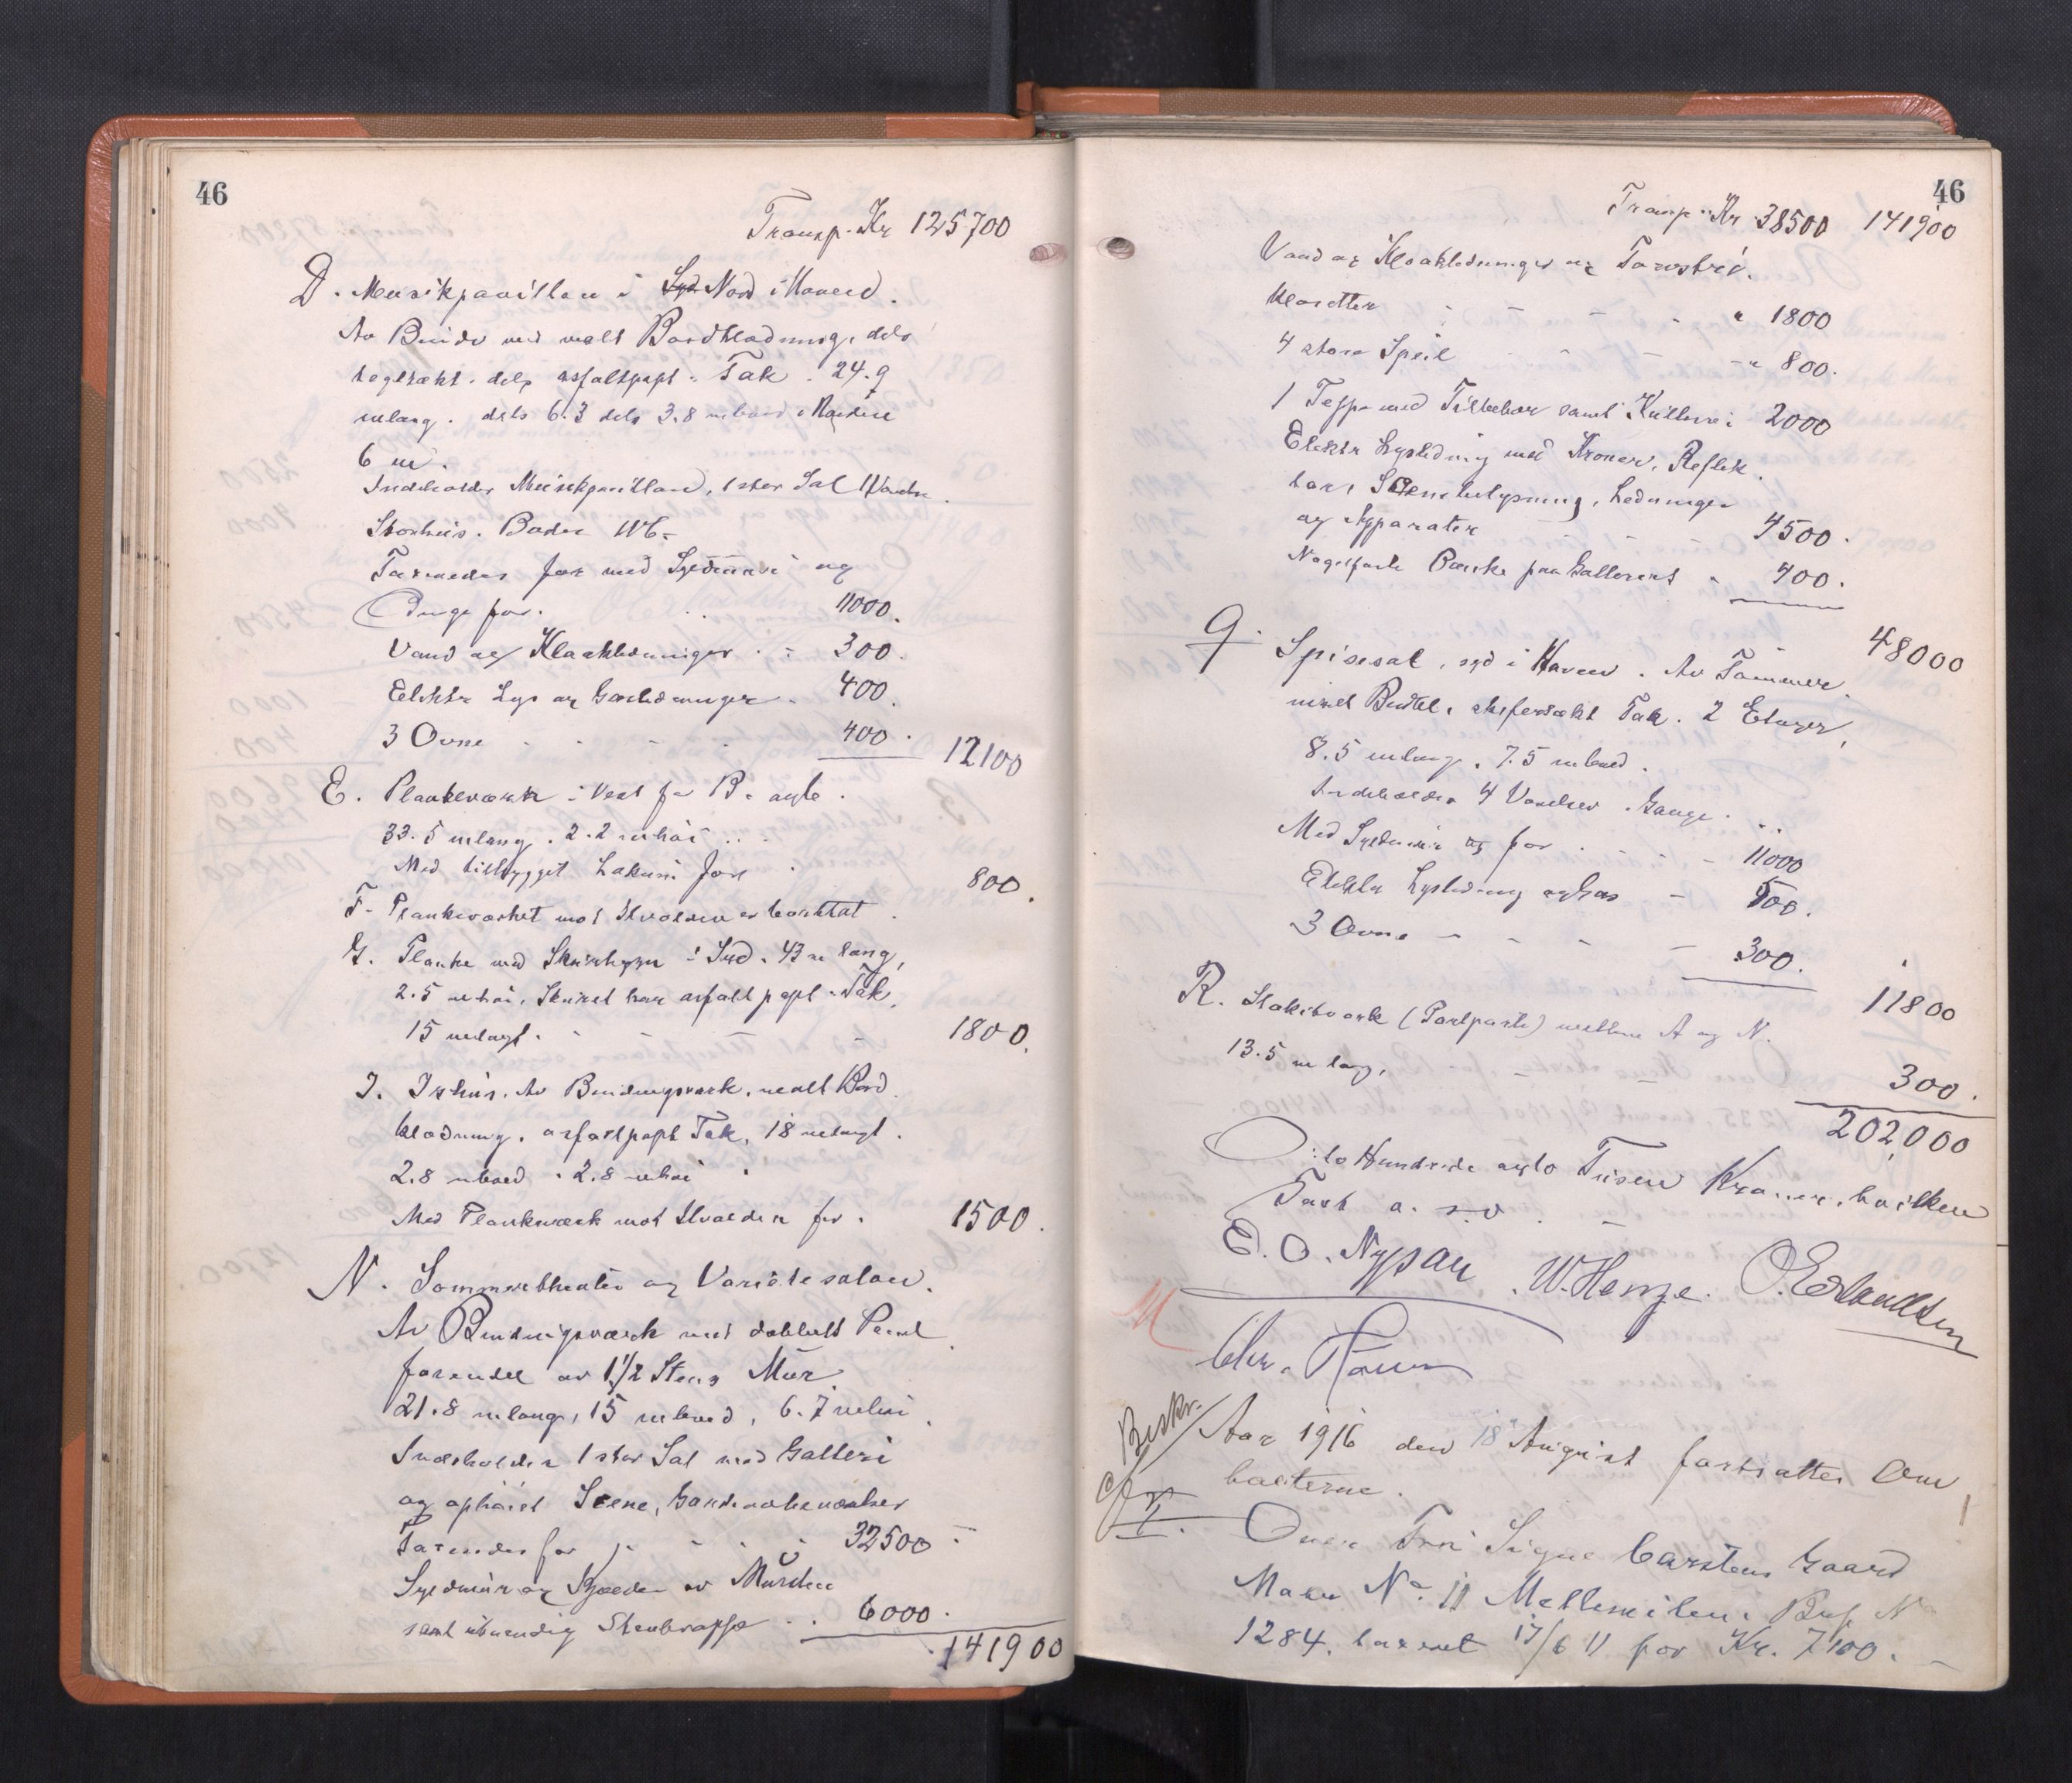 46
Transp. Kr 125700
D. Musikpavillon i Syd Nord i Haven.
Av Bindv. med malt Bordklædning, dels
tegltækt. dels asfaltpapt. Tak. 24.9
m lang. dels 6.3 dels 3.8 m bred i Høiden
6 m.
Indeholder Musikpavillon, 1 stor Sal
Boder WC
Taxeredes for med Syldmur og
for. 11000.
Vand og Kloakledninger 300.
Elektr. Lys og Gasledninger. 400.
3 Ovne 400. 12100
E. Plankeværk i Vest for B.
33.5 m lang. 2.2 m høi
Med tilbygget Lokum for 800.
F. Plankeværket mot Hvalden er borttat
G. Planke med Skur i Syd. 43 m lang,
2.5 m høi. Skuret har asfaltpapt. Tak.
15 m langt. 1800.
J. Ishus. Av Bindingsværk. malt Bord
klædning. asfaltpapt Tak, 18 m langt.
2.8 m bred. 2.8 m høi
Med Plankeværk mot Hvalden for. 1500.
N. Sommertheater og Varietesalon.
Av Bindingsværk med dobbelt Panel
forendel av 1 1/2 Stens Mur
21.8 m lang, 15 m bred, 6.7 m høi
Indeholder 1 stor Sal med Galleri
og ophøiet Scene, Garderobeværelser
Taxeredes for 32500
Syldmur og av Murene
samt utvendig 6000.
141900
46
Transp. Kr 38500 141900
Vand og Kloakledninger og
klosetter " 1800
4 store Speil " 800.
1 Teppe med Tilbehør samt Kulisser 2000
Elektr Lysledning med Kroner, Reflek
tor, Scenebelysning, Ledninger
og Apparater 4500.
Nagelfaste Bænke paa Galleriet 400.
48000
Q. Spisesal, syd i Haven. Av Tømmer
skifertækt Tak. 2 Etager,
8.5 m lang, 7.5 m bred.
Indeholder 4 Værelser. Gange.
Med Syldmur og for 11000
Elektr Lysledning og Gas 500.
3 Ovne 300.
11800
R. Stakitværk (Portparti) mellem A og N.
13.5 m lang, 300.
202,000
To Hundrede og to Tusen Kroner, hvilken
Taxt o. s. v.
E. O. Nypan W. Henze. O. Erlandsen
M
Chr.
Beskr.
Aar 1916 den 18 August fortsattes Om
takterne.
Over Fru Signe Carstens Gaard
Matr No 11 Møllesmilen. Brf. No
1284. taxeret 17/6 11 for Kr. 7100.